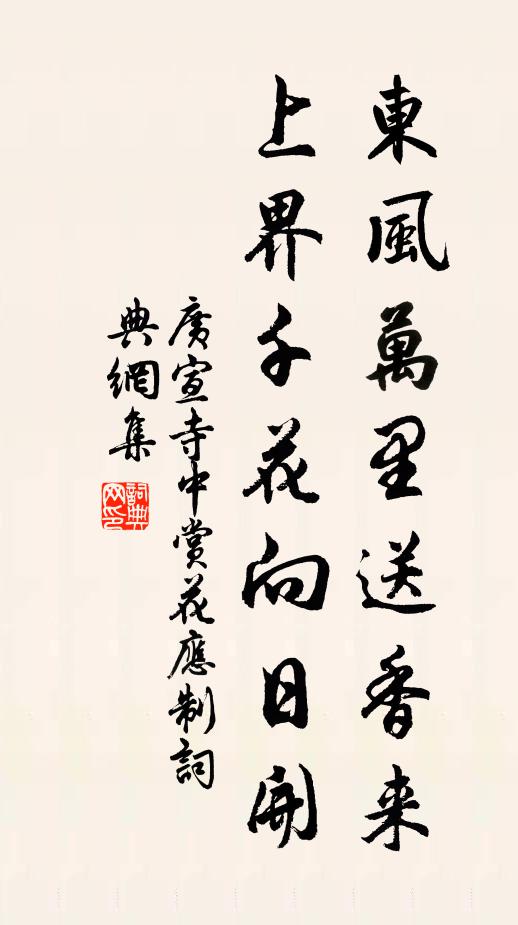 東風萬里送香来
上界千花向日開
廣宣寺中賞花應制詞
典網集
詞典网印